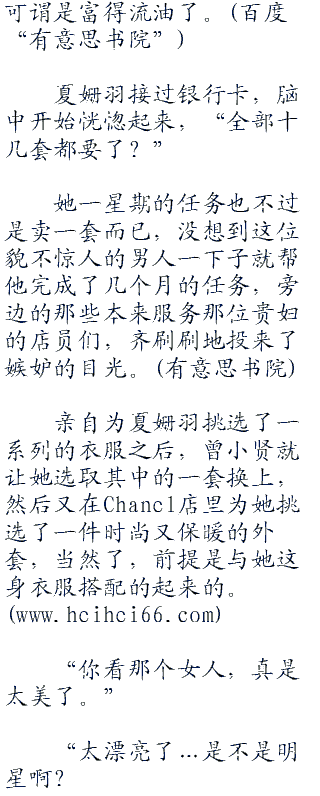 可谓是富得流油了。(百度
“有意思书院”)
夏姗羽接过银行卡，脑
中开始恍惚起来，“全部十
几套都要了？”
她一星期的任务也不过
是卖一套而已，没想到这位
貌不惊人的男人一下子就帮
他完成了几个月的任务，旁
边的那些本来服务那位贵妇
的店员们，齐刷刷地投来了
嫉妒的目光。(有意思书院)
亲自为夏姗羽挑选了一
系列的衣服之后，曾小贤就
让她选取其中的一套换上，
然后又在Chancl店里为她挑
选了一件时尚又保暖的外
套，当然了，前提是与她这
身衣服搭配的起来的。
(www.hcihci66.com)
“你看那个女人，真是
太美了。”
“太漂亮了…是不是明
星啊？